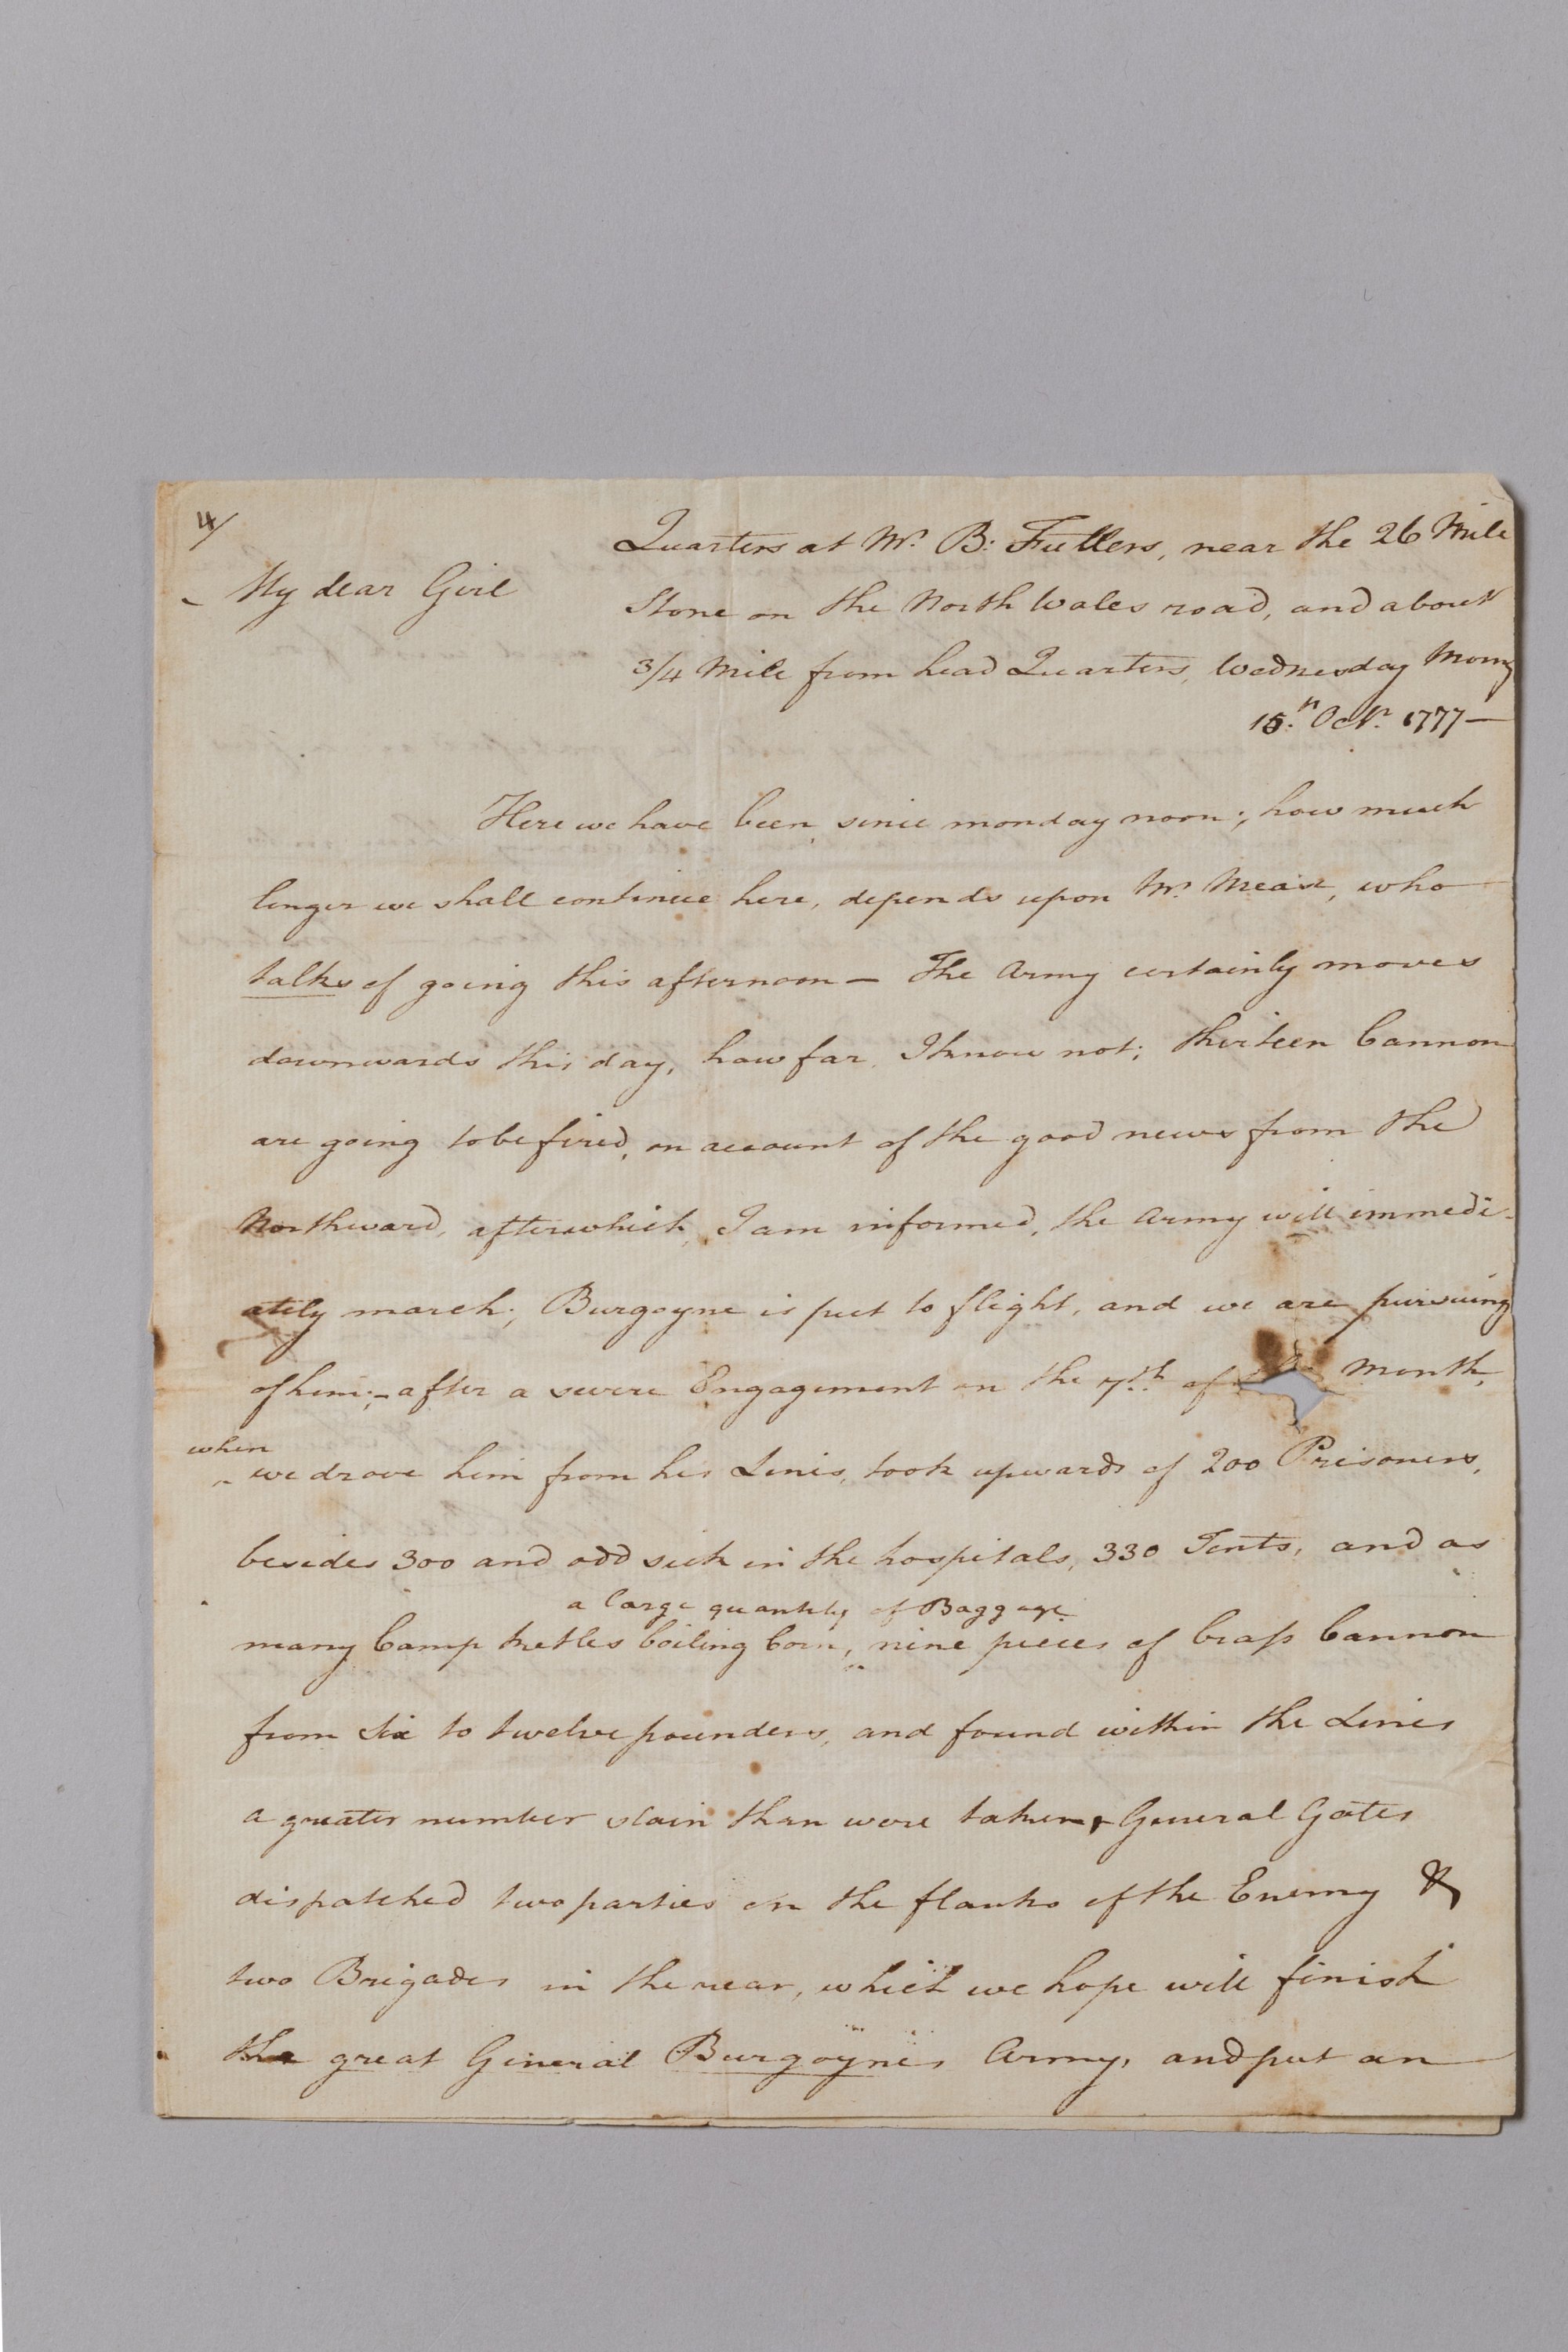 4/
Quarters at Mr. B: Fullers, near the 26 Mile
My dear Girl
Stone on the North Wales road, and about
3/4 Mile from head Quarters, Wednesday Morng
15.th Octr. 1777—
Here we have been, since monday noon; how much
longer we shall continue here, depends upon Mr. Mease, who
talks of going this afternoon — The Army certainly moves
downwards this day, how far, I know not; thirteen Cannon
are going to be fired, on account of the good news from the
Northward, after which, I am informed, the Army will immedi-
ately march; Burgoyne is put to flight, and we are pursuing
of him;- after a severe Engagement on the 7th. of month,
when
we drove him from his Lines, took upwards of 200 Prisoners,
besides 300 and odd sick in the hospitals, 330 Tents, and as
a large quantity of Baggage
many Camp ketles boiling Corn, nine pieces of brass Cannon
from Six to twelve pounders, and found within the Lines
a greater number slain than were taken, General Gates
dispatched two parties on the flanks of the Enemy &
two Brigades in the rear, which we hope will finish
the great General Burgoynes Army, and put an